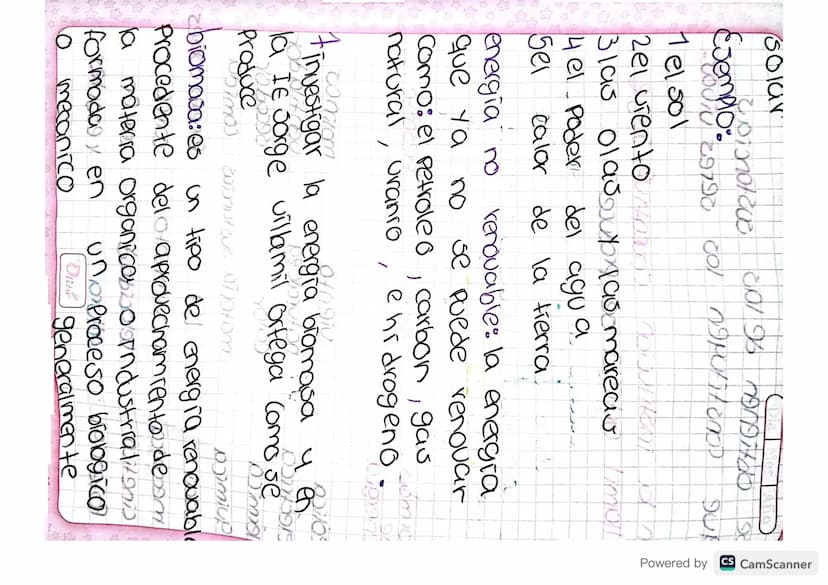 solar
Ejemplo:
1 el sol
2 el viento
3 las olas y las mareas
4 el poder del agua
5 el calor de la tierra
energía no renovable: la energía
que ya no se puede renovar
como: el petroleo, carbon, gas
natural, uranio, e hidrogeno.
1 investigar la energía biomasa y en
la IE Jorge Villamil Ortega como se
produce
biomasa: es un tipo de energía renovable
Procedente del aprovechamiento de
la materia organica o industrial
formada en un proceso biologico
o mecanico generalmente
Powered by CS CamScanner